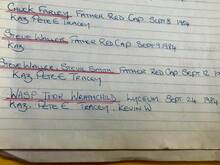 Chuck Farley, Father Red Cap Sept 8 1984
Kaz, Pete E Tracey
Steve Waller, Father Red Cap, Sept 9 1984
Kaz, Pete E Tracey
Steve Waller, Steve Father Red Cap Sept 12
Kaz, Pete E Tracey
WASP, Wrathchild, Lyceum. Sept 24 1984
Kaz, Pete E Tracey, Kevin W